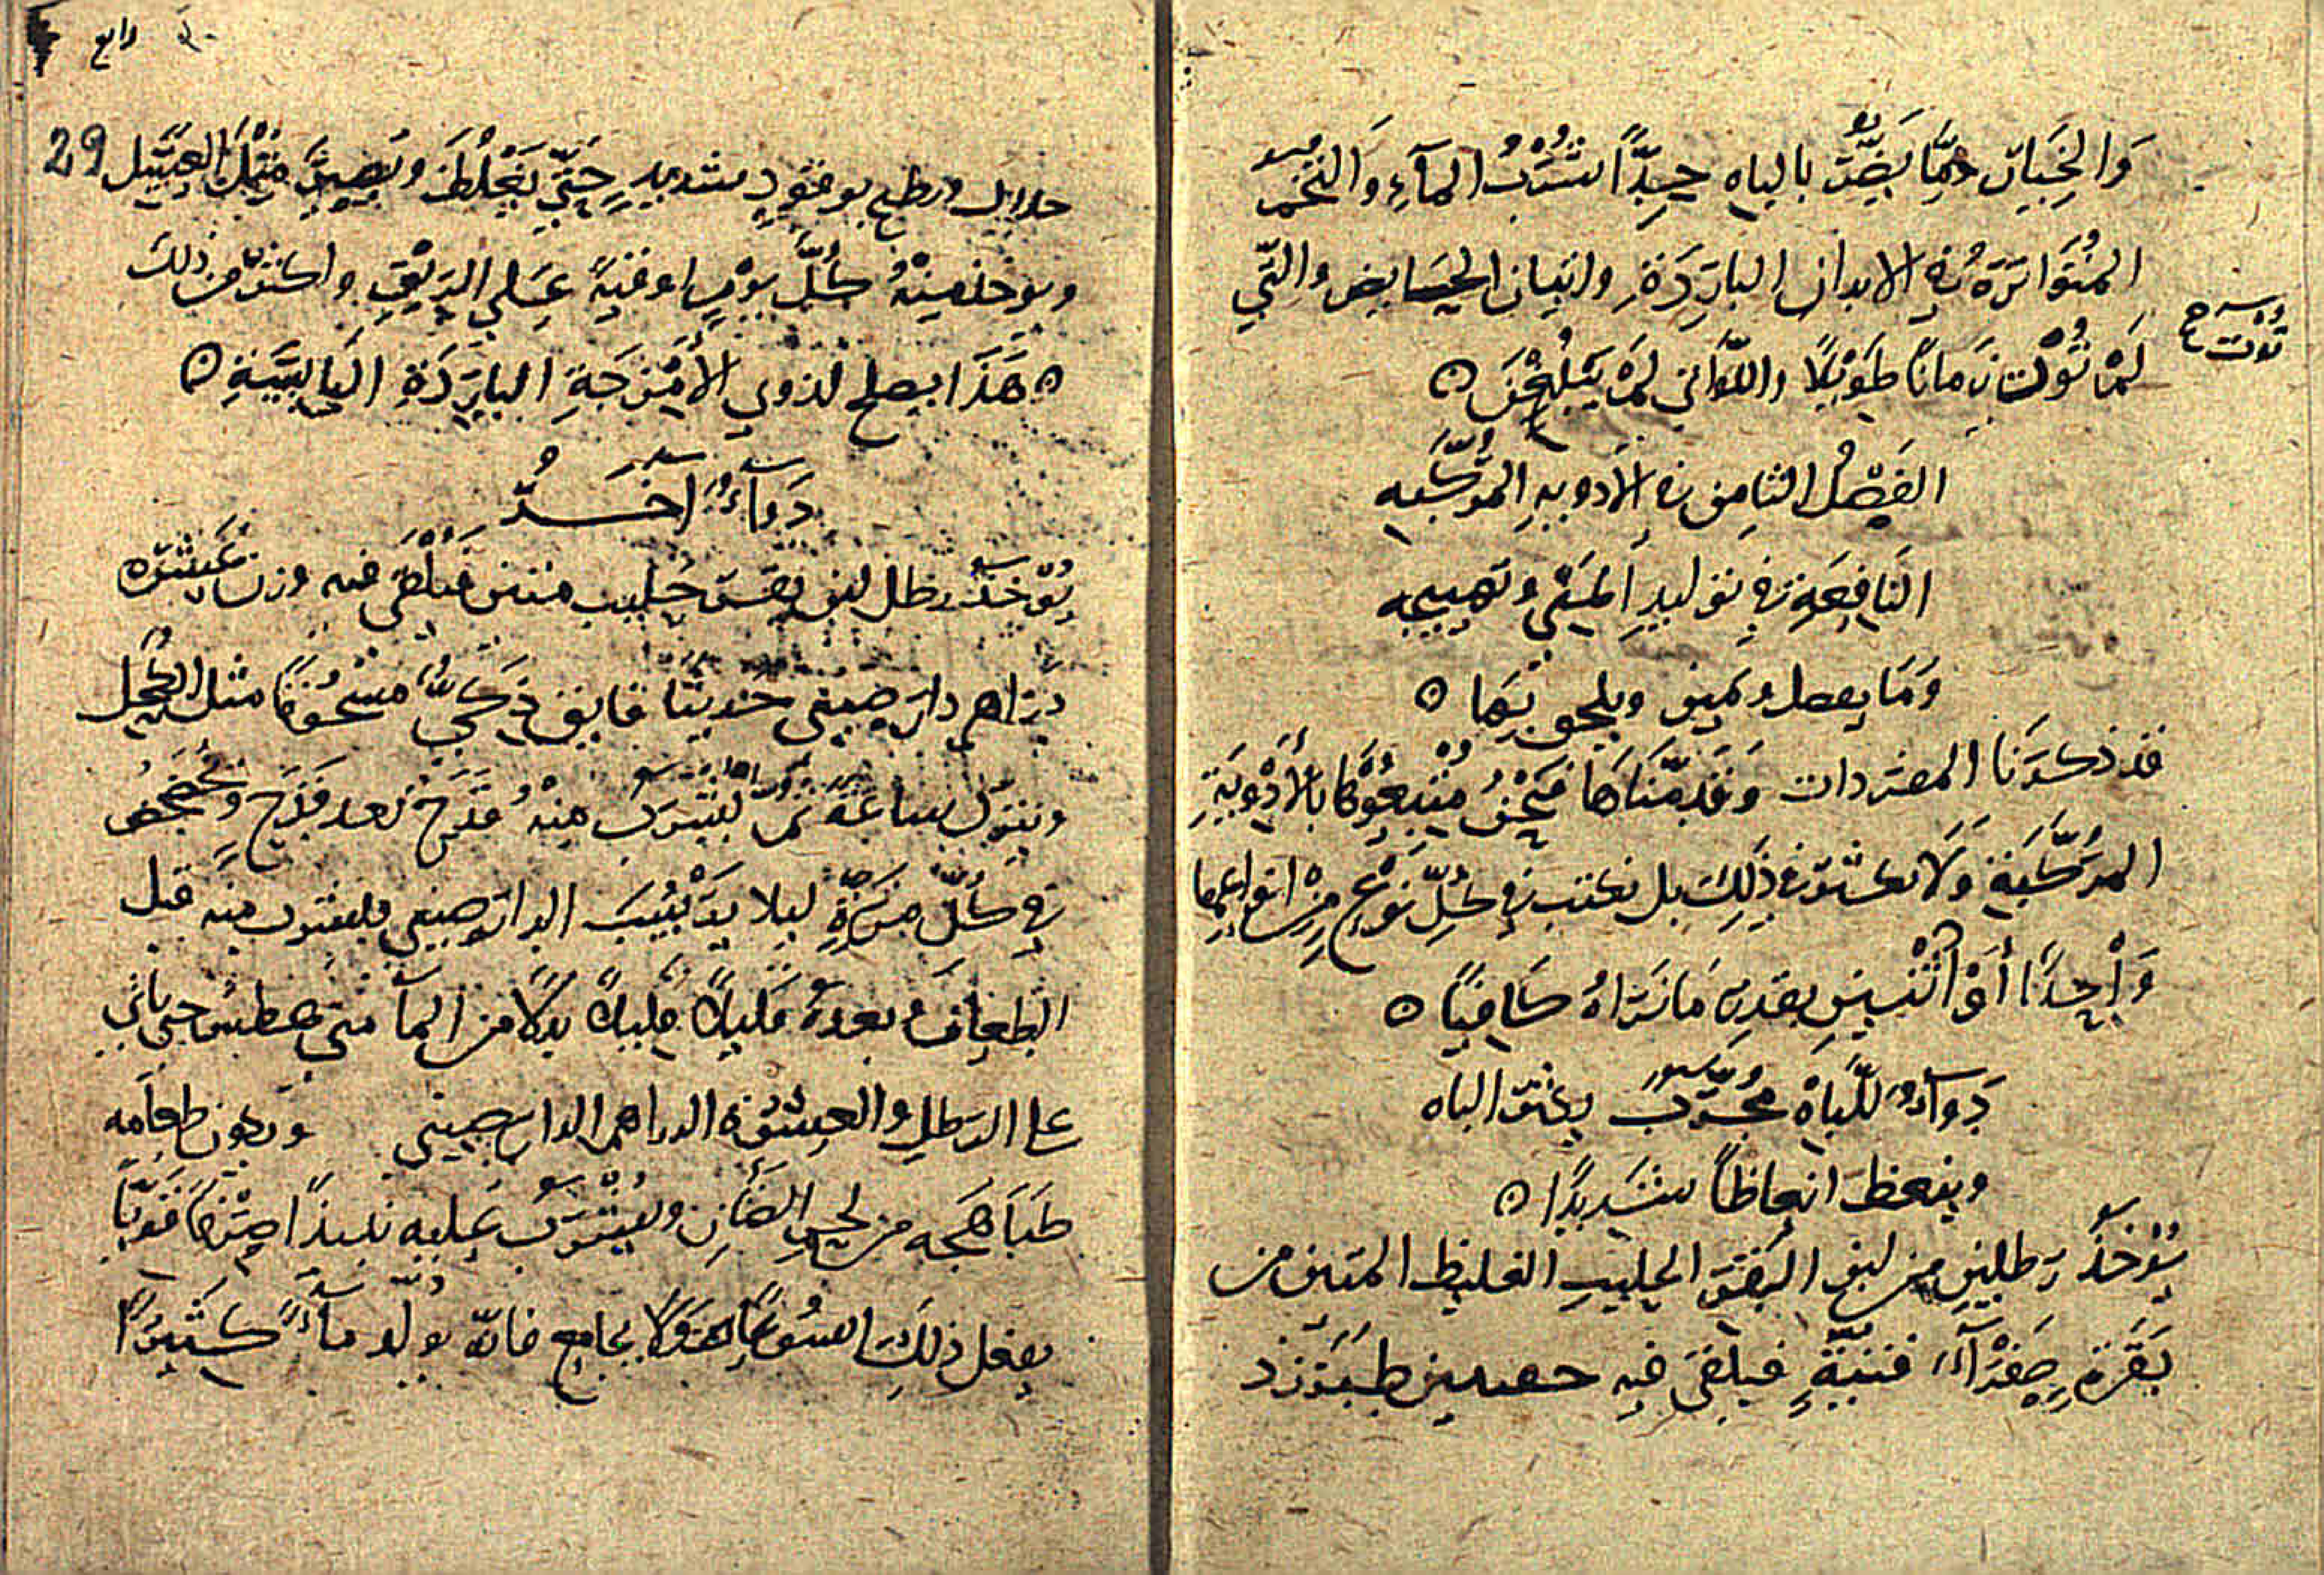 وَالخِيَار ومِمَّا يَضُرّ بالباه جِدًّا شُرْبُ المآءِ وَالتُخَم
المُتَوَاتِرَة في الابدان البَارِدَةِ واتيان الحُيَّض والتِّي
لَمْ تُوْت زَمانًا طَويْلًا واللّواتي لَمْ يَبْلُغْنَ ه
تُوْت صح
الفَصْلُ الثامِن في الأدويهِ المُركَّبه
النَافِعَةِ في توليدِ المَنَي وتهييجه
وَمَا يفعل ويلحق بهما ه
قد ذكرنَا المفردات وَقَدمّنَاهَا فنَحْنُ مُتْبِعُوْهَا بالأَدْوِيَةِ
المُركَّبَةِ وَلَا نكثر في ذَلِكَ بل نكتب في كُلِّ نَوْعٍ مِنْ انواعِهَا
وَاْحِدًا أوَ اثْنَيْنِ بقدرِ مَا نَرَاهُ كَافِيًا ه
دَوآءٌ للْبَاهْ مُجَرّبٌ يكثر الباه
وينعظ انعاظًا شَدِيدًا ه
يُؤخَذُ رطلينِ من لبن البَقَر الحليبِ الغليظ المتين من
بَقَرَةٍ صَفْرَآءَ فتيّةٍ فيلقى فيه حفنتين طبَرزد
29
رابع
حلايل ويطبخ بوقودٍ شديدٍ حَتَّى يَغْلُظَ ويَصِيرَ مِثْلَ العسَل
ويوخذ منْهُ كُلَّ يَوْمٍ اوقيةً عَلي الرِيْقِ واكثر من ذلك
ه هَذَا يصلح لذوي الأَمْزِجَةِ البَارِدَةِ اليَابِسَةِ ه
دَوآءٌ اخَرُ
يُؤخَذُ رطل لبن بقر حَليب فيُلْقَى فيه وزن عَشَرَة
دَرَاهم دَارَصيني فايق ذَكيٌّ مَسْحُوقًا مثل الكحل
ويترك ساعَةً ثمّ يُشرَب منْهُ قَدَح بعد قَدَح ويُخضخَض
في كُلّ مَرّةٍ ليلا يَرْسُبَ الدارصيني فليشرب منه قبل
الطَعام وبعدهُ قَليلاً قليلاً بَدَلًا من المآ متي عطش حتي ياتي
على الرطل والعِشَرة الدراهم الدارصيني ويكون طعامه
طبَاهَجه من لحم الضَأنِ ويُشْرَبُ عليه نبيذًا صِرْفًا قَوِيًّا
يفعل ذَلِكَ اسبُوعًا وَلَا يجامع فانّه يولّد مآءً كَثيْرًا